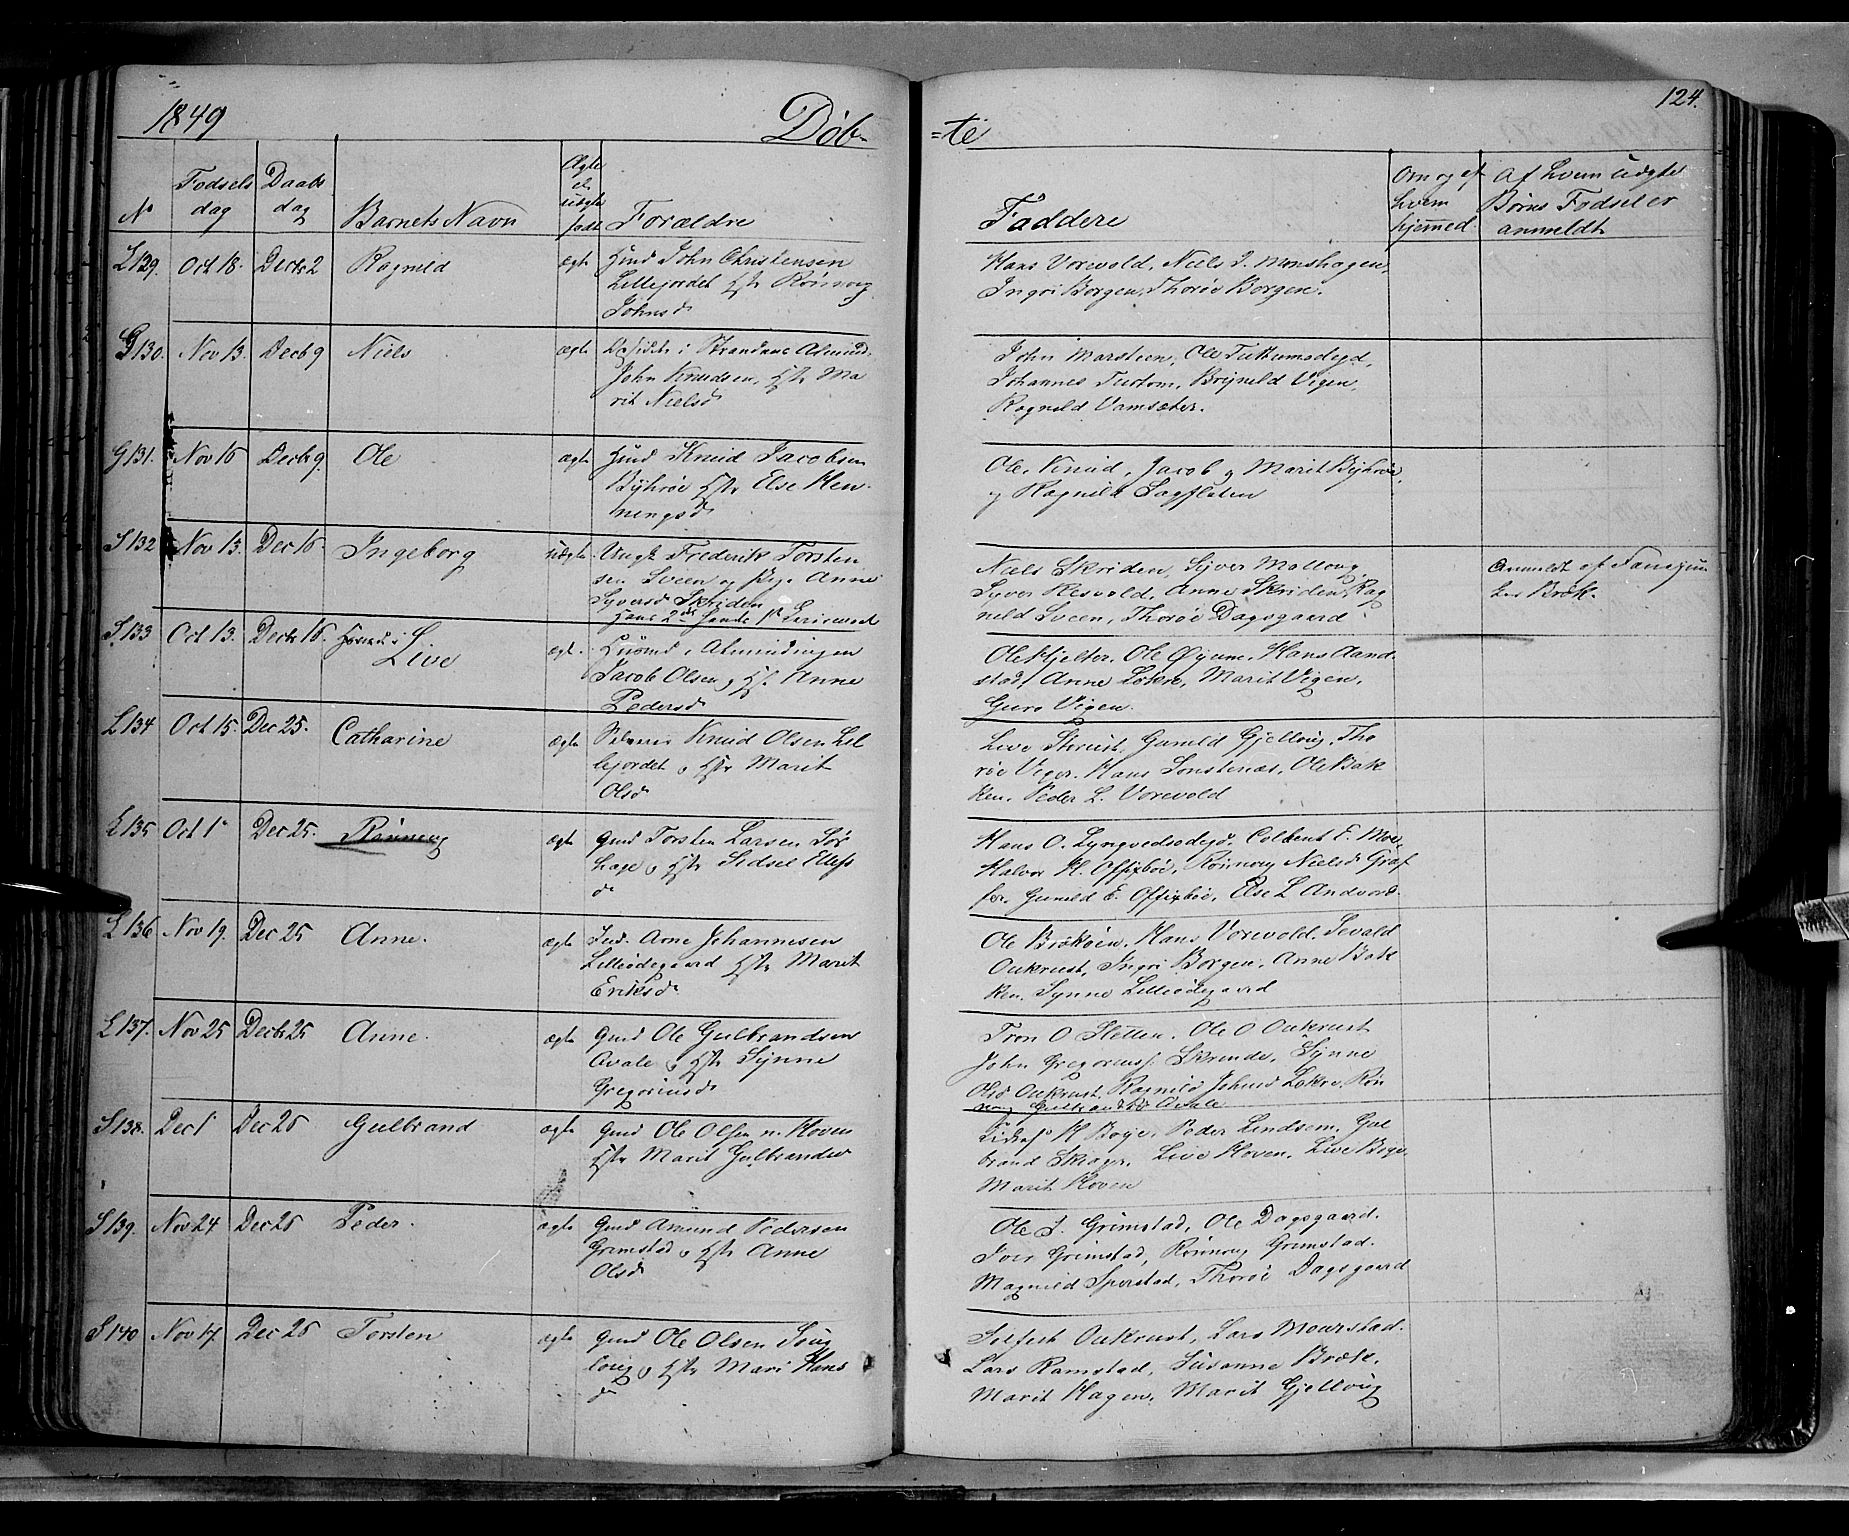 1849
Døb-
=te
124.
No
Fødsels dag
Daabs dag
Barnets Navn
Ægte el. uægte født
Forældre
Faddere
Om og af hvem hjemmed.
Af hvem uægte Børns Fødsel er anmeldt
L 129. Oct 18. Decbr 2 Ragnild ægte Huusmd John Christensen
Lillejordet Hstr Rønnoug
Johnsdr
Hans Vorevold, Niels J. Monshagen,
Ingri Borgen, Thorøe Borgen.
G 130. Nov 13. Decb 9 Niels ægte
John Knudsen, Hstr Ma
rit Nielsdr
John Marsteen, Ole
Johannes Brynild Vigen,
Ragnild Vamsæter.
G 131. Nov 16 Decbr 9. Ole ægte Huusmd Knud Jacobsen
Byhrøe Hstr Else Hen
ningsdr
Ole, Knud, Jacob og Marit Byhrøe,
og Ragnild Sagflaten
S 132 Nov 13. Dec 16. Ingeborg uægte Ungk Frederik Torsten
sen Sveen og Pige Anne
Syversd Skriden
Hans 2den hendes 1st Leiermaal
Niels Skriden, Syver
Syver Resvold, Anne Skriden, Rag
nild Sveen, Thorøe Dagsgaard
Anmeldt af
Bræk.
S 133 Oct 13. Decbr 16. Live ægte. Huusmd i Almindingen
Jacob Olsen og H. Anne
Pedersdr
Ole Hjelter, Ole Øyum, Hans Aand
stad, Anne Løkre, Marit Vigen,
Guro Vigen.
L 134 Oct 15. Dec 25. Catharine ægte Knud Olsen Lil
lejordet og Hstr Marit
Olsdr
Live Skrust, Gunild Gjelloug, Tho
røe Vigen, Hans Sonstenæs, Ole Bak
ken, Peder L. Vorevold
L 135 Oct 1 Dec 25. Rønnoug ægte Gmd Torsten Larsen Sør
hage og Hstr Sidsel Ellefs
dr
Hans O. Lyngvedsødegd, Colbent E. Moe,
Halvor H. Offigsbøe, Rønnoug Nielsdr Graf
fer, Gunild E. Offigsbøe, Else L Andvord.
L 136 Nov 19. Dec 25 Anne. ægte Ind. Arne Johannesen
Lilleødegaard Hstr Marit
Eriksdr
Ole Hans Vorevold, Sevald
Oukrust, Ingri Borgen, Anne Bak
ken, Synne Lilleødegaard
L 137. Nov 25 Decbr 25 Anne. ægte Gmd Ole Gulbrandsen
Avale og Hstr Synne
Gregoriusdr
Tron O Sletten, Ole O Oukrust
John Gregoriuss. Skrinde, Synne
Olsd Oukrust, Ragnild Johnsd Løkre, Røn
noug Gulbrandsd Avale
S 138. Dec 1 Dec 26 Gulbrand ægte Gmd Ole Olsen n. Hoven
Hstr Marit Gulbrandsd
H Bøye, Peder Lindsem, Gul
brand Skiager, Live Hoven, Live Bøye,
Marit Hoven
S 139. Nov 24 Dec 26 Peder. ægte Gmd Amund Pedersen
Grimstad og Hstr Anne
Olsdr
Ole J. Grimstad, Ole Dagsgaard.
Iver Grimstad, Rønnoug Grimstad.
Magnild Sperstad, Thorøe Dagsgaard
S 140 Nov 17. Dec 26 Torsten ægte Gmd Ole Olsen
Hstr Mari Hans
dr
Selfest Oukrust, Lars Mourstad.
Lars Ramstad, Susanne Bræk,
Marit Hagen, Marit Gjelloug